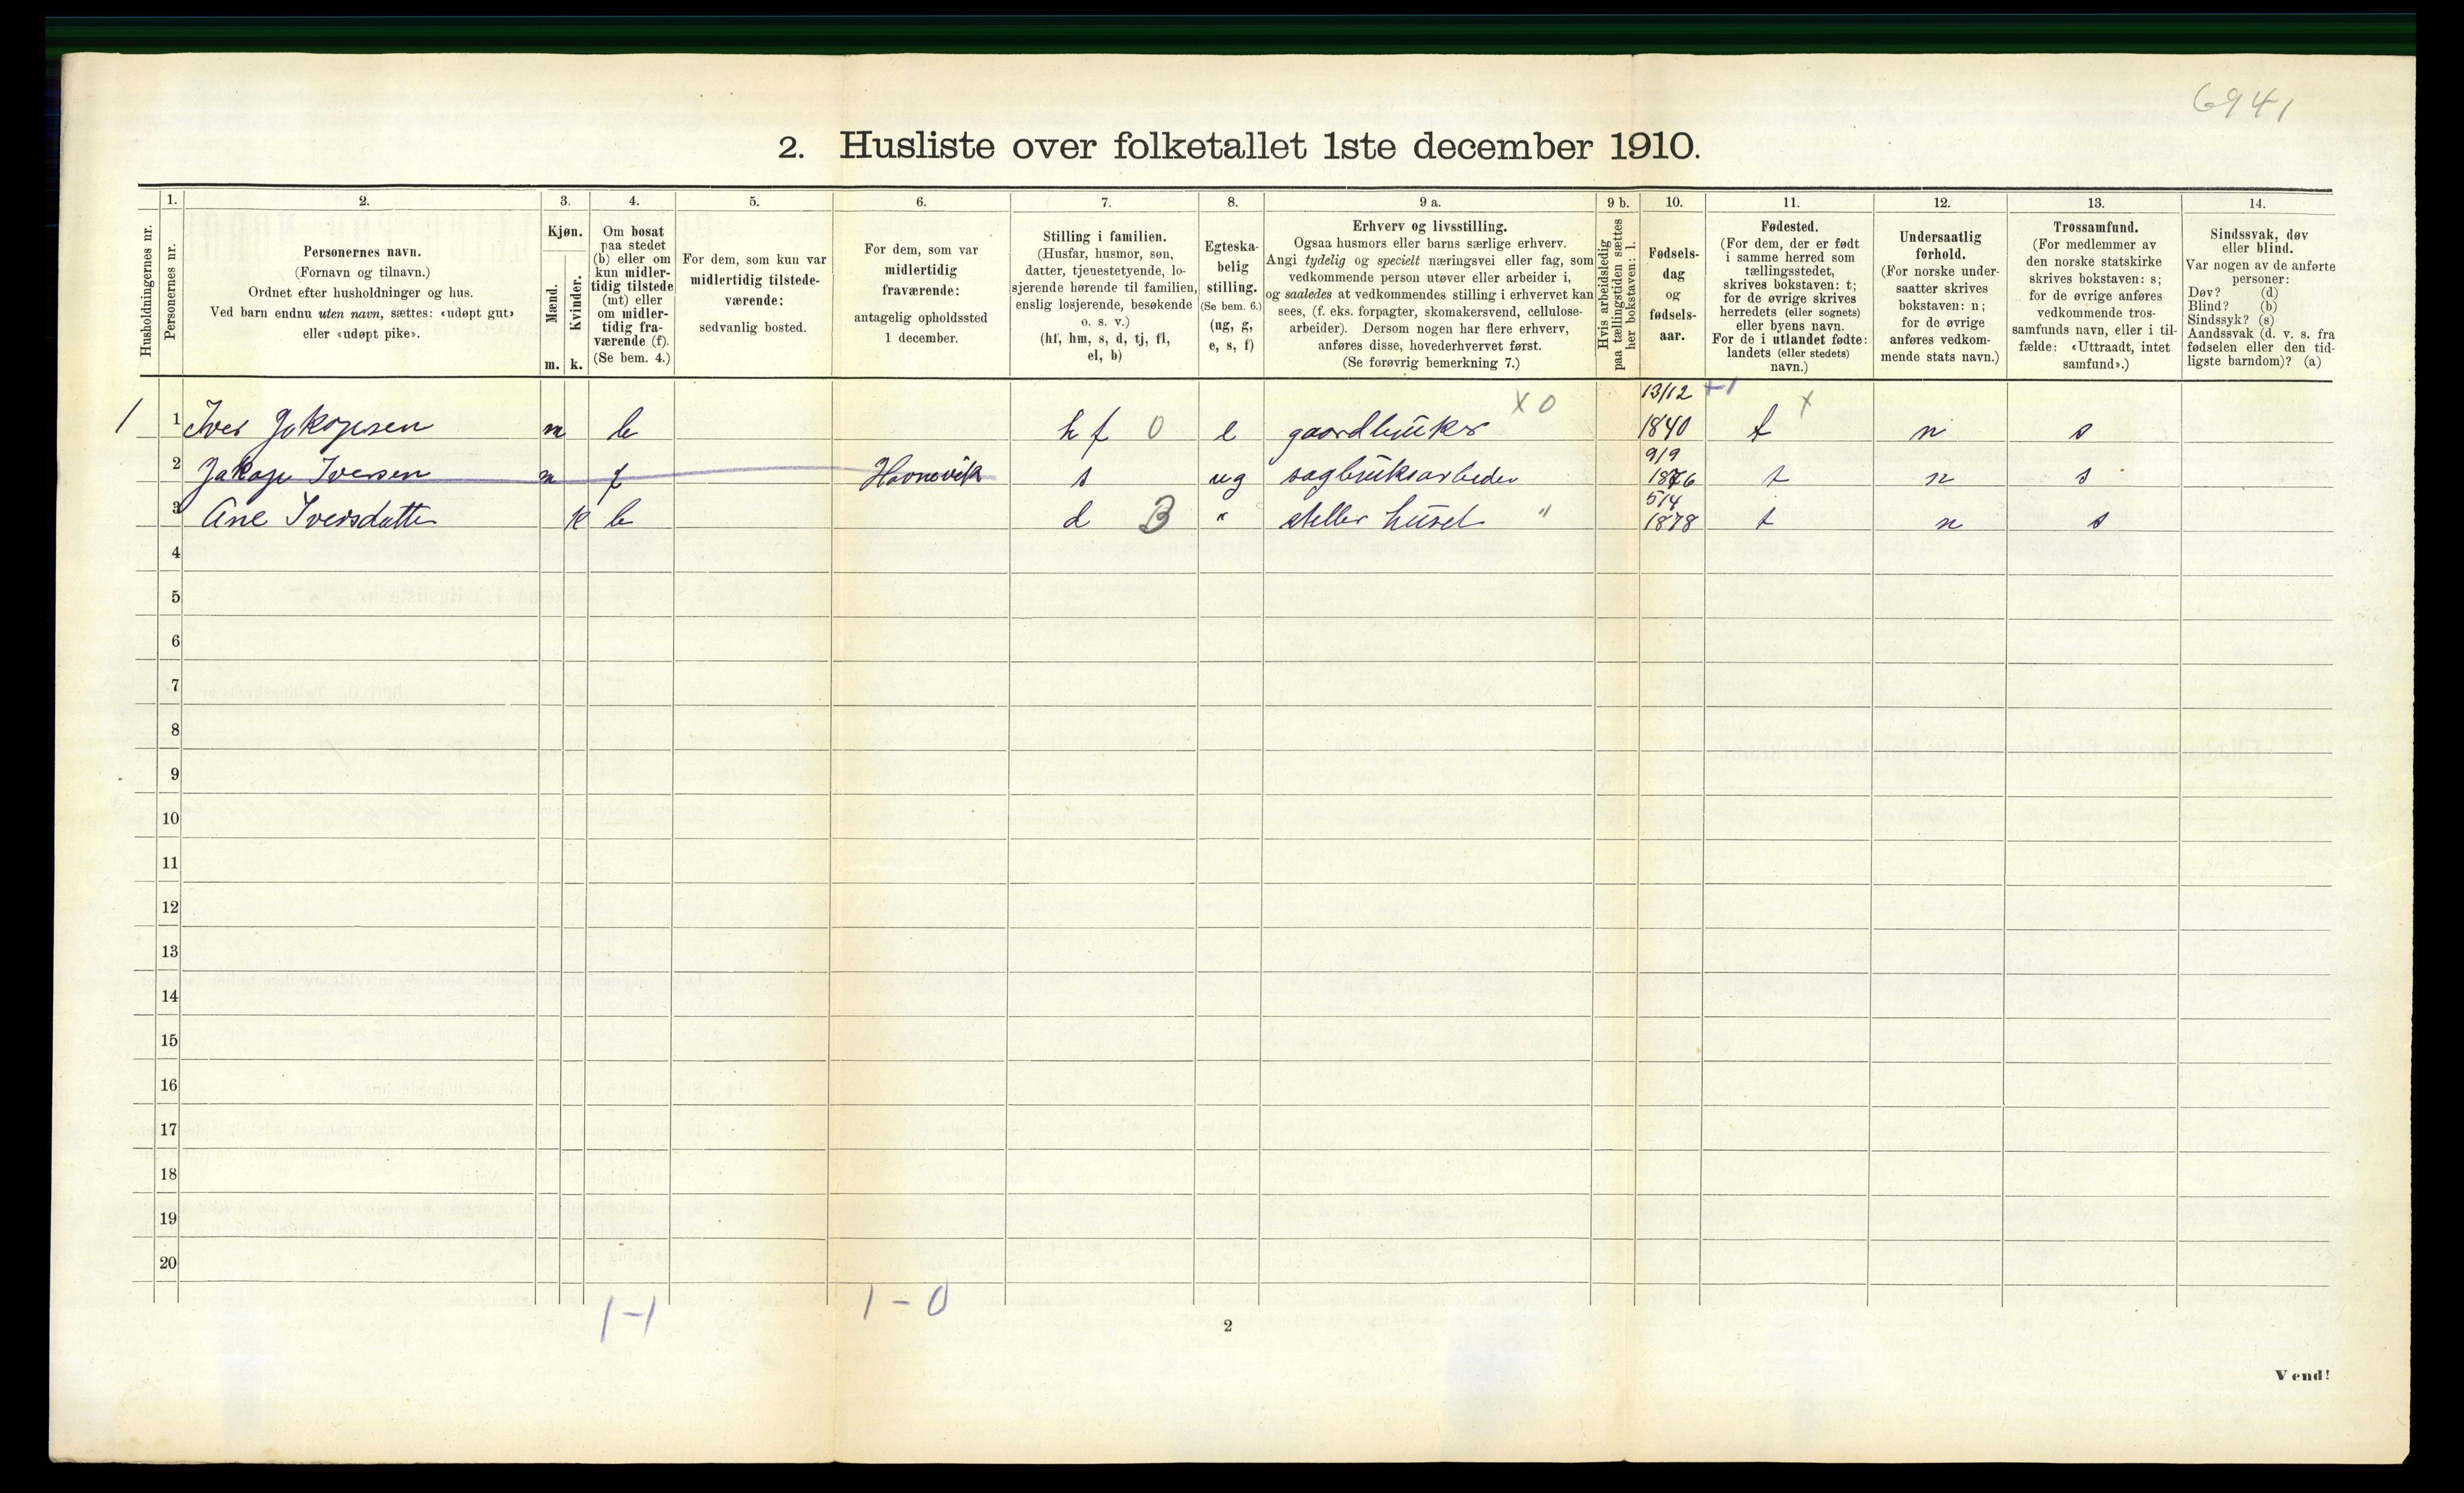 6941
2. Husliste over folketallet 1ste december 1910.
Husholdningernes nr.
1.
Personernes nr.
2.
Personernes navn.
(Fornavn og tilnavn.)
Ordnet efter husholdninger og hus.
Ved barn endnu uten navn, sættes: «udøpt gut»
eller «udøpt pike».
3.
Kjøn.
Mænd.
Kvinder.
m. k.
4.
Om bosat
paa stedet
(b) eller om
kun midler-
tidig tilstede
(mt) eller
om midler-
tidig fra-
værende (f).
(Se bem. 4.)
5.
For dem, som kun var
midlertidig tilstede-
værende:
sedvanlig bosted.
6.
For dem, som var
midlertidig
fraværende:
antagelig opholdssted
1 december.
7.
Stilling i familien.
(Husfar, husmor, søn,
datter, tjenestetyende, lo-
sjerende hørende til familien,
enslig losjerende, besøkende
o. s. v.)
(hf, hm, s, d, tj, fl,
el, b)
8.
Egteska-
belig
stilling.
(Se bem. 6.)
(ug, g,
e, s, f)
9 a.
Erhverv og livsstilling.
Ogsaa husmors eller barns særlige erhverv.
Angi tydelig og specielt næringsvei eller fag, som
vedkommende person utøver eller arbeider i,
og saaledes at vedkommendes stilling i erhvervet kan
sees, (f. eks. forpagter, skomakersvend, cellulose-
arbeider). Dersom nogen har flere erhverv,
anføres disse, hovederhvervet først.
(Se forøvrig bemerkning 7.)
9 b.
Hvis arbeidsledig
paa tællingstiden sættes
her bokstaven: l.
10.
Fødsels-
dag
og
fødsels-
aar.
11.
Fødested.
(For dem, der er født
i samme herred som
tællingsstedet,
skrives bokstaven: t;
for de øvrige skrives
herredets (eller sognets)
eller byens navn.
For de i utlandet fødte:
landets (eller stedets)
navn.)
12.
Undersaatlig
forhold.
(For norske under-
saatter skrives
bokstaven: n;
for de øvrige
anføres vedkom-
mende stats navn.)
13.
Trossamfund.
(For medlemmer av
den norske statskirke
skrives bokstaven: s;
for de øvrige anføres
vedkommende tros-
samfunds navn, eller i til-
fælde: «Uttraadt, intet
samfund».)
14.
Sindssvak, døv
eller blind.
Var nogen av de anførte
personer:
Døv? (d)
Blind? (b)
Sindssyk? (s)
Aandssvak (d. v. s. fra
fødselen eller den tid-
ligste barndom)? (a)
1 1 Iver Jakopsen m b hf 0 e gaardbruker x 0 13/12 1840 +1 t x n s
2 Jakop Iversen m f Havnevik s ug sagbruksarbeider 9/9 1876 t n s
3 Ane Iversdatter k b d B " steller huset " 5/4 1878 t n s
4
5
6
7
8
9
10
11
12
13
14
15
16
17
18
19
20
1-1 1-0
2
Vend!